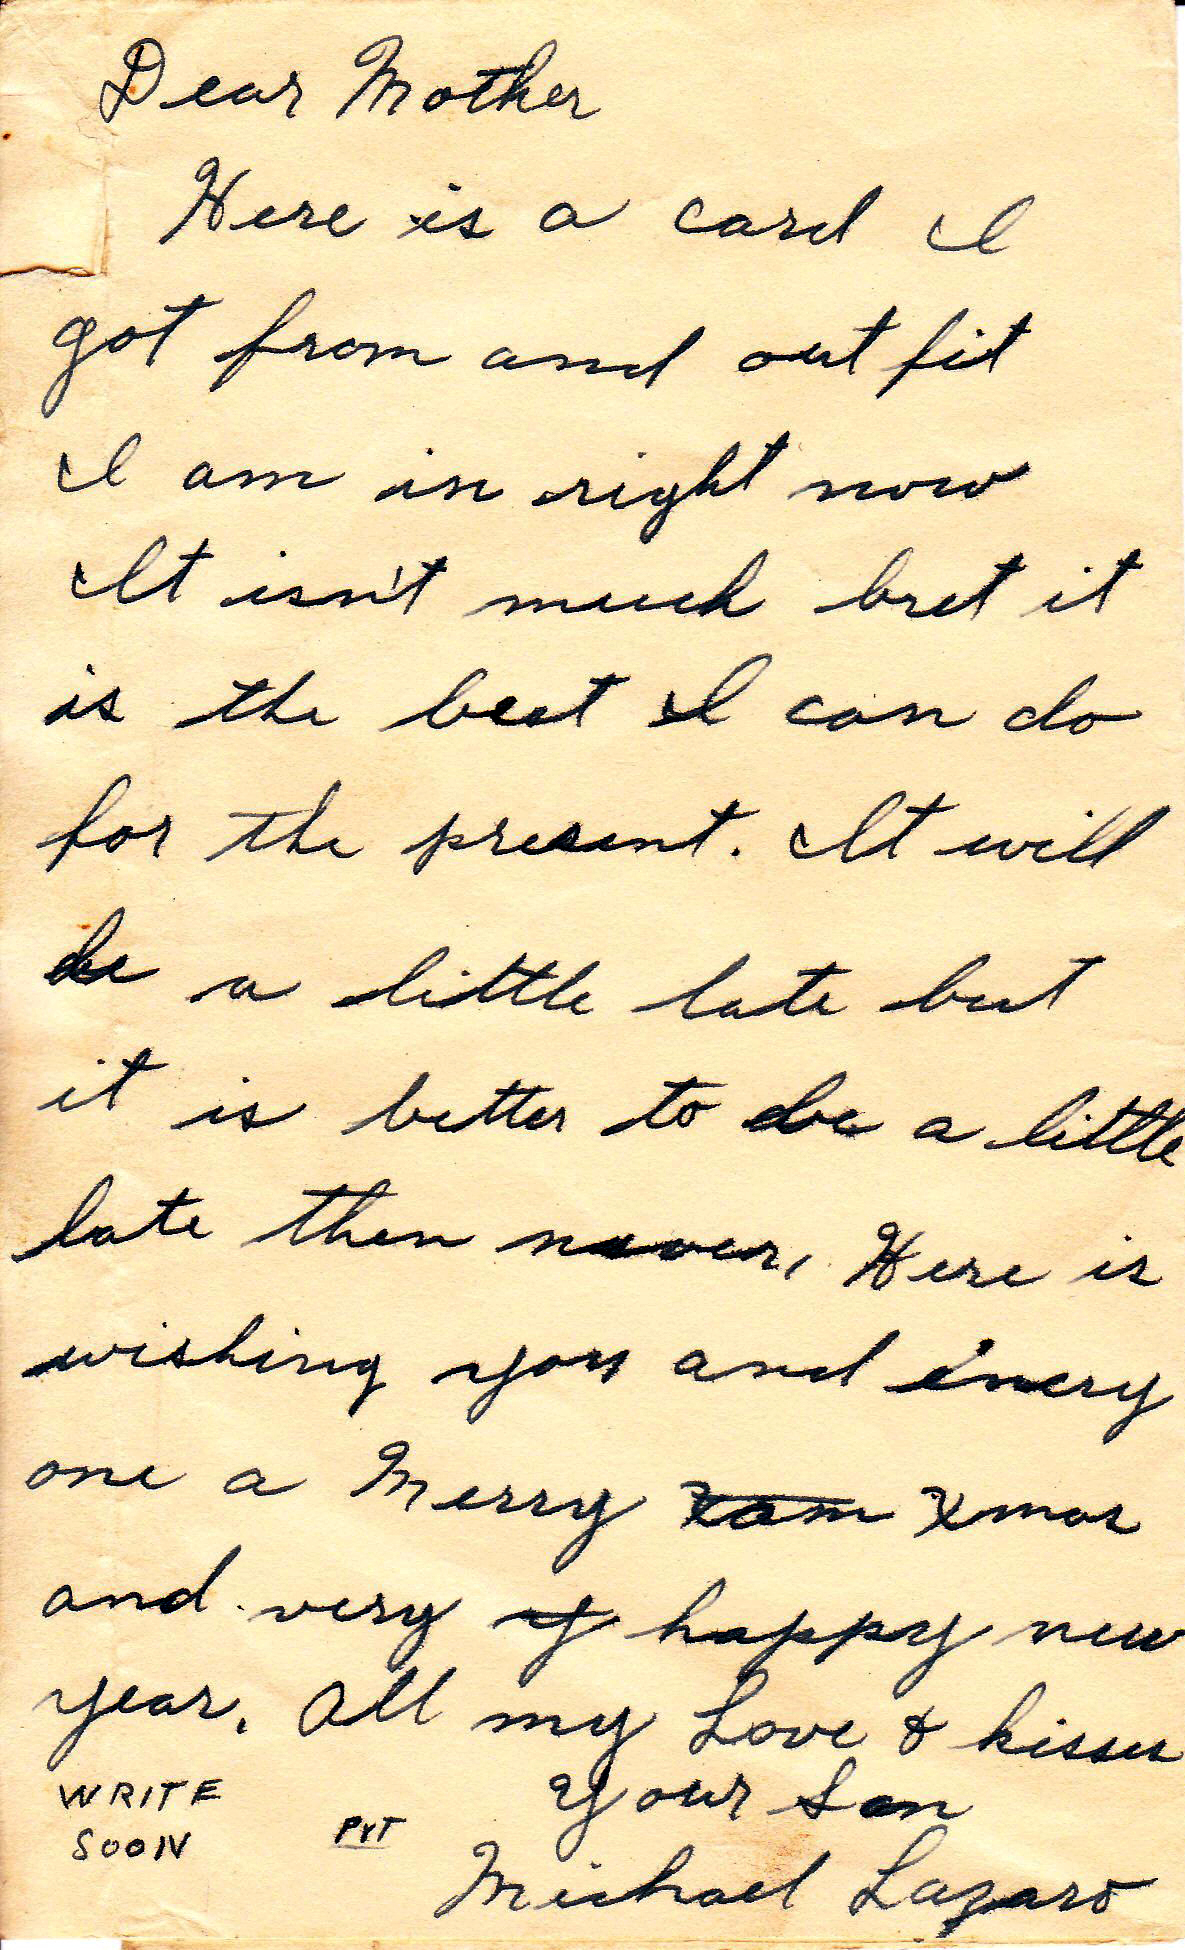 Dear Mother
Here is a card I
got from and out fit
I am in right now
It isn't much but it
is the best I can do
for the present. It will
be a little late but
it is better to be a little
late then never, Here is
wishing you and every
one a Merry Xmas
and very happy new
year. All my Love & kisses
WRITE Your Son
SOON PVT
Michael Lazaro